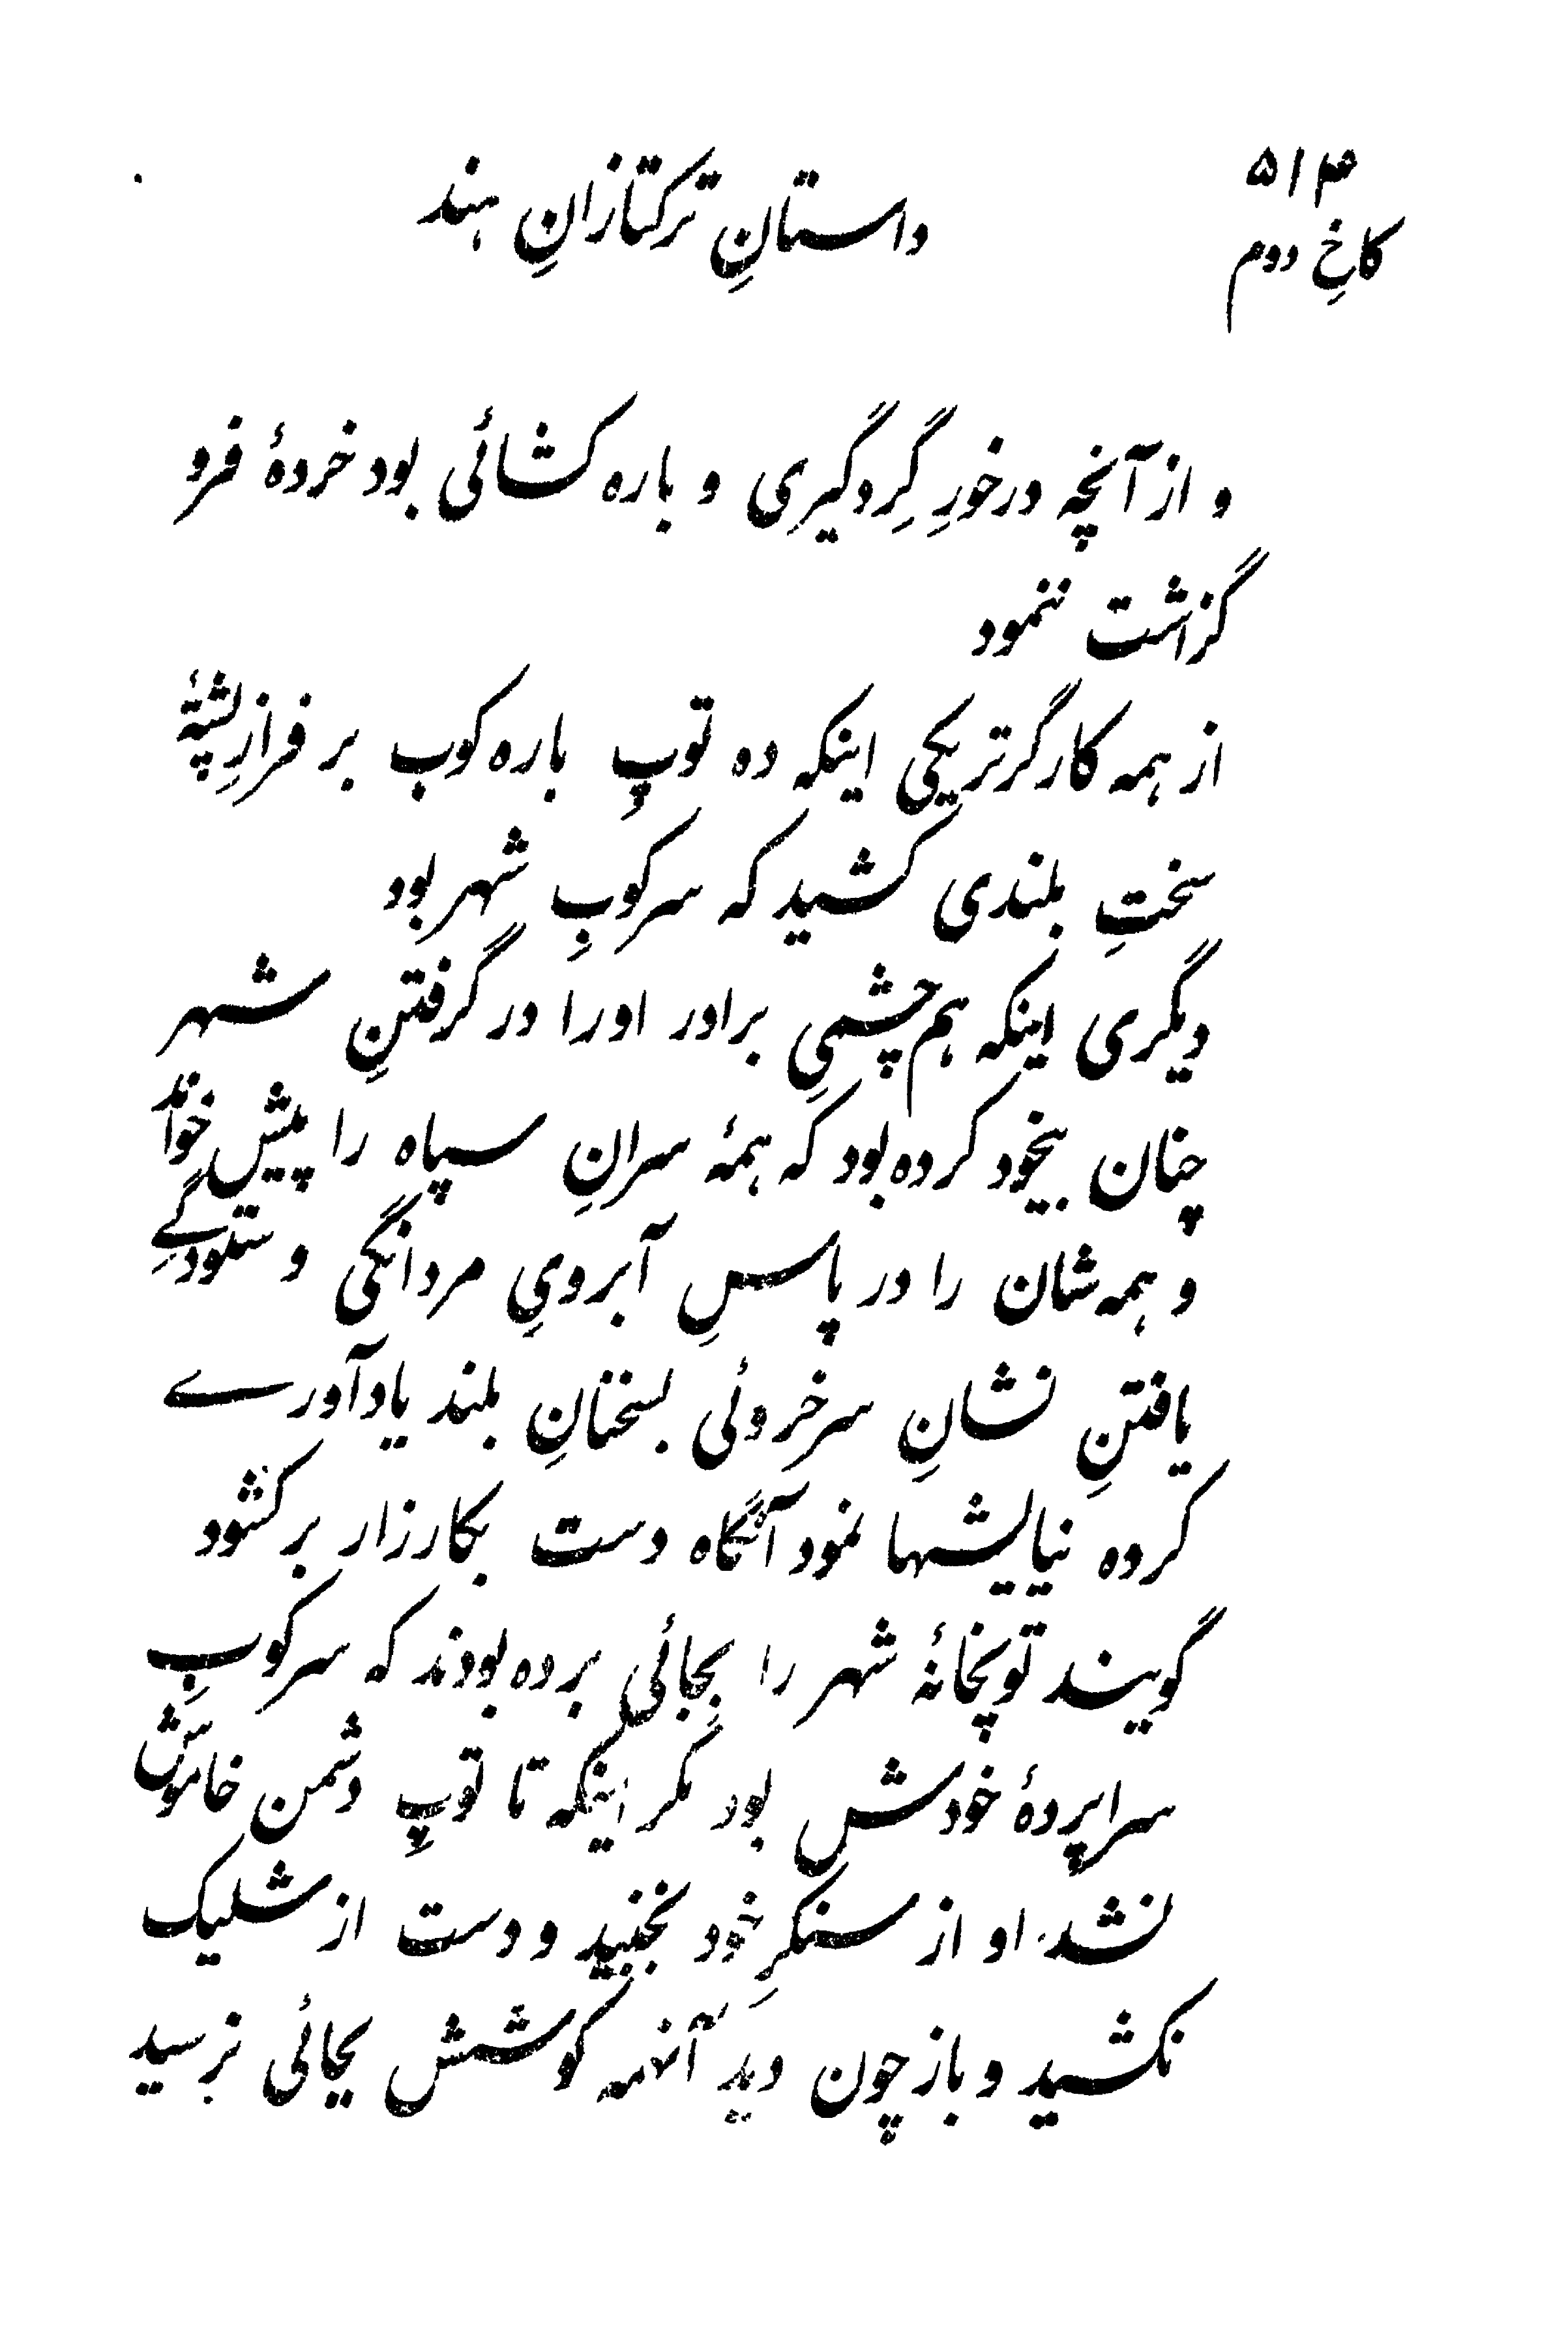 ۵۱۴
کاخِ دوم
داستانِ ترکتازانِ هند
و از آنچه درخورِ گِردگیری و باره کشائی بود خردهٔ فرو
گزاشت ننمود
از همه کارگرتر یکی اینکه ده توپِ باره کوب بر فرازِ پشتهٔ
سختِ بلندی کشید که سرکوبِ شهر بود
دیگری اینکه هم چشمیِ برادر اورا در گرفتنِ شهر
چنان بیخود کرده بود که همهٔ سرانِ سپاه را پیش خواند
و همه شان را در پاسِ آبرویِ مردانگی و ستودگےِ
یافتنِ نشانِ سرخروئی بسخنانِ بلند یادآورے
کرده نیایشها نمود آنگاه دست بکارزار برکشود
گویند توپخانهٔ شهر را بجائی برده بودند که سرکوبِ
سراپردهٔ خودش بود مگر اینکه تا توپِ دشمن خاموش
نشد او از سنگرِ خود نجنبید و دست از شلیک
نکشید و باز چون دید آنهمه کوشش بجائی نرسید